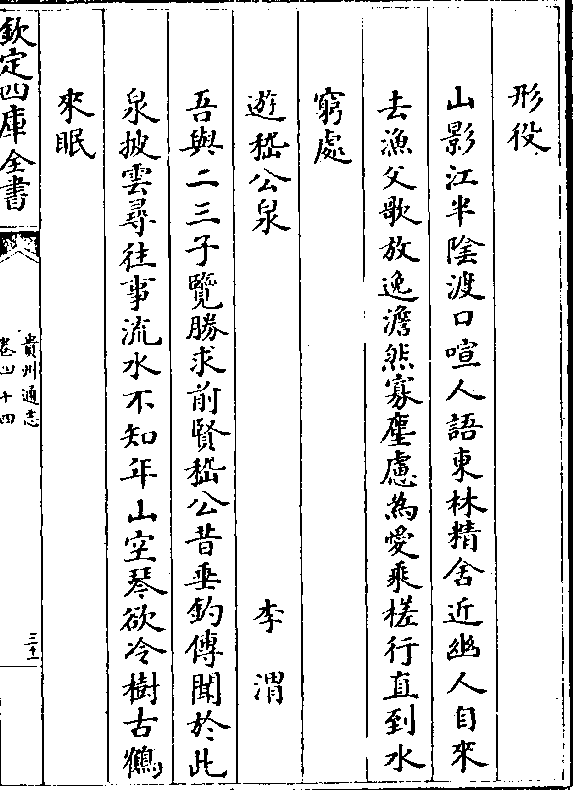 形役
山影江半陰渡口喧人語東林精舍近幽人自來
去漁父歌放逸澹然寡塵慮為愛乘槎行直到水
窮處
遊嵇公泉　李渭
吾與二三子覽勝求前賢嵇公昔垂釣傳聞於此
泉披雲尋往事流水不知年山空琴欲冷樹古鶴
來眠
欽定四庫全書
貴州通志
卷四十四
三十二